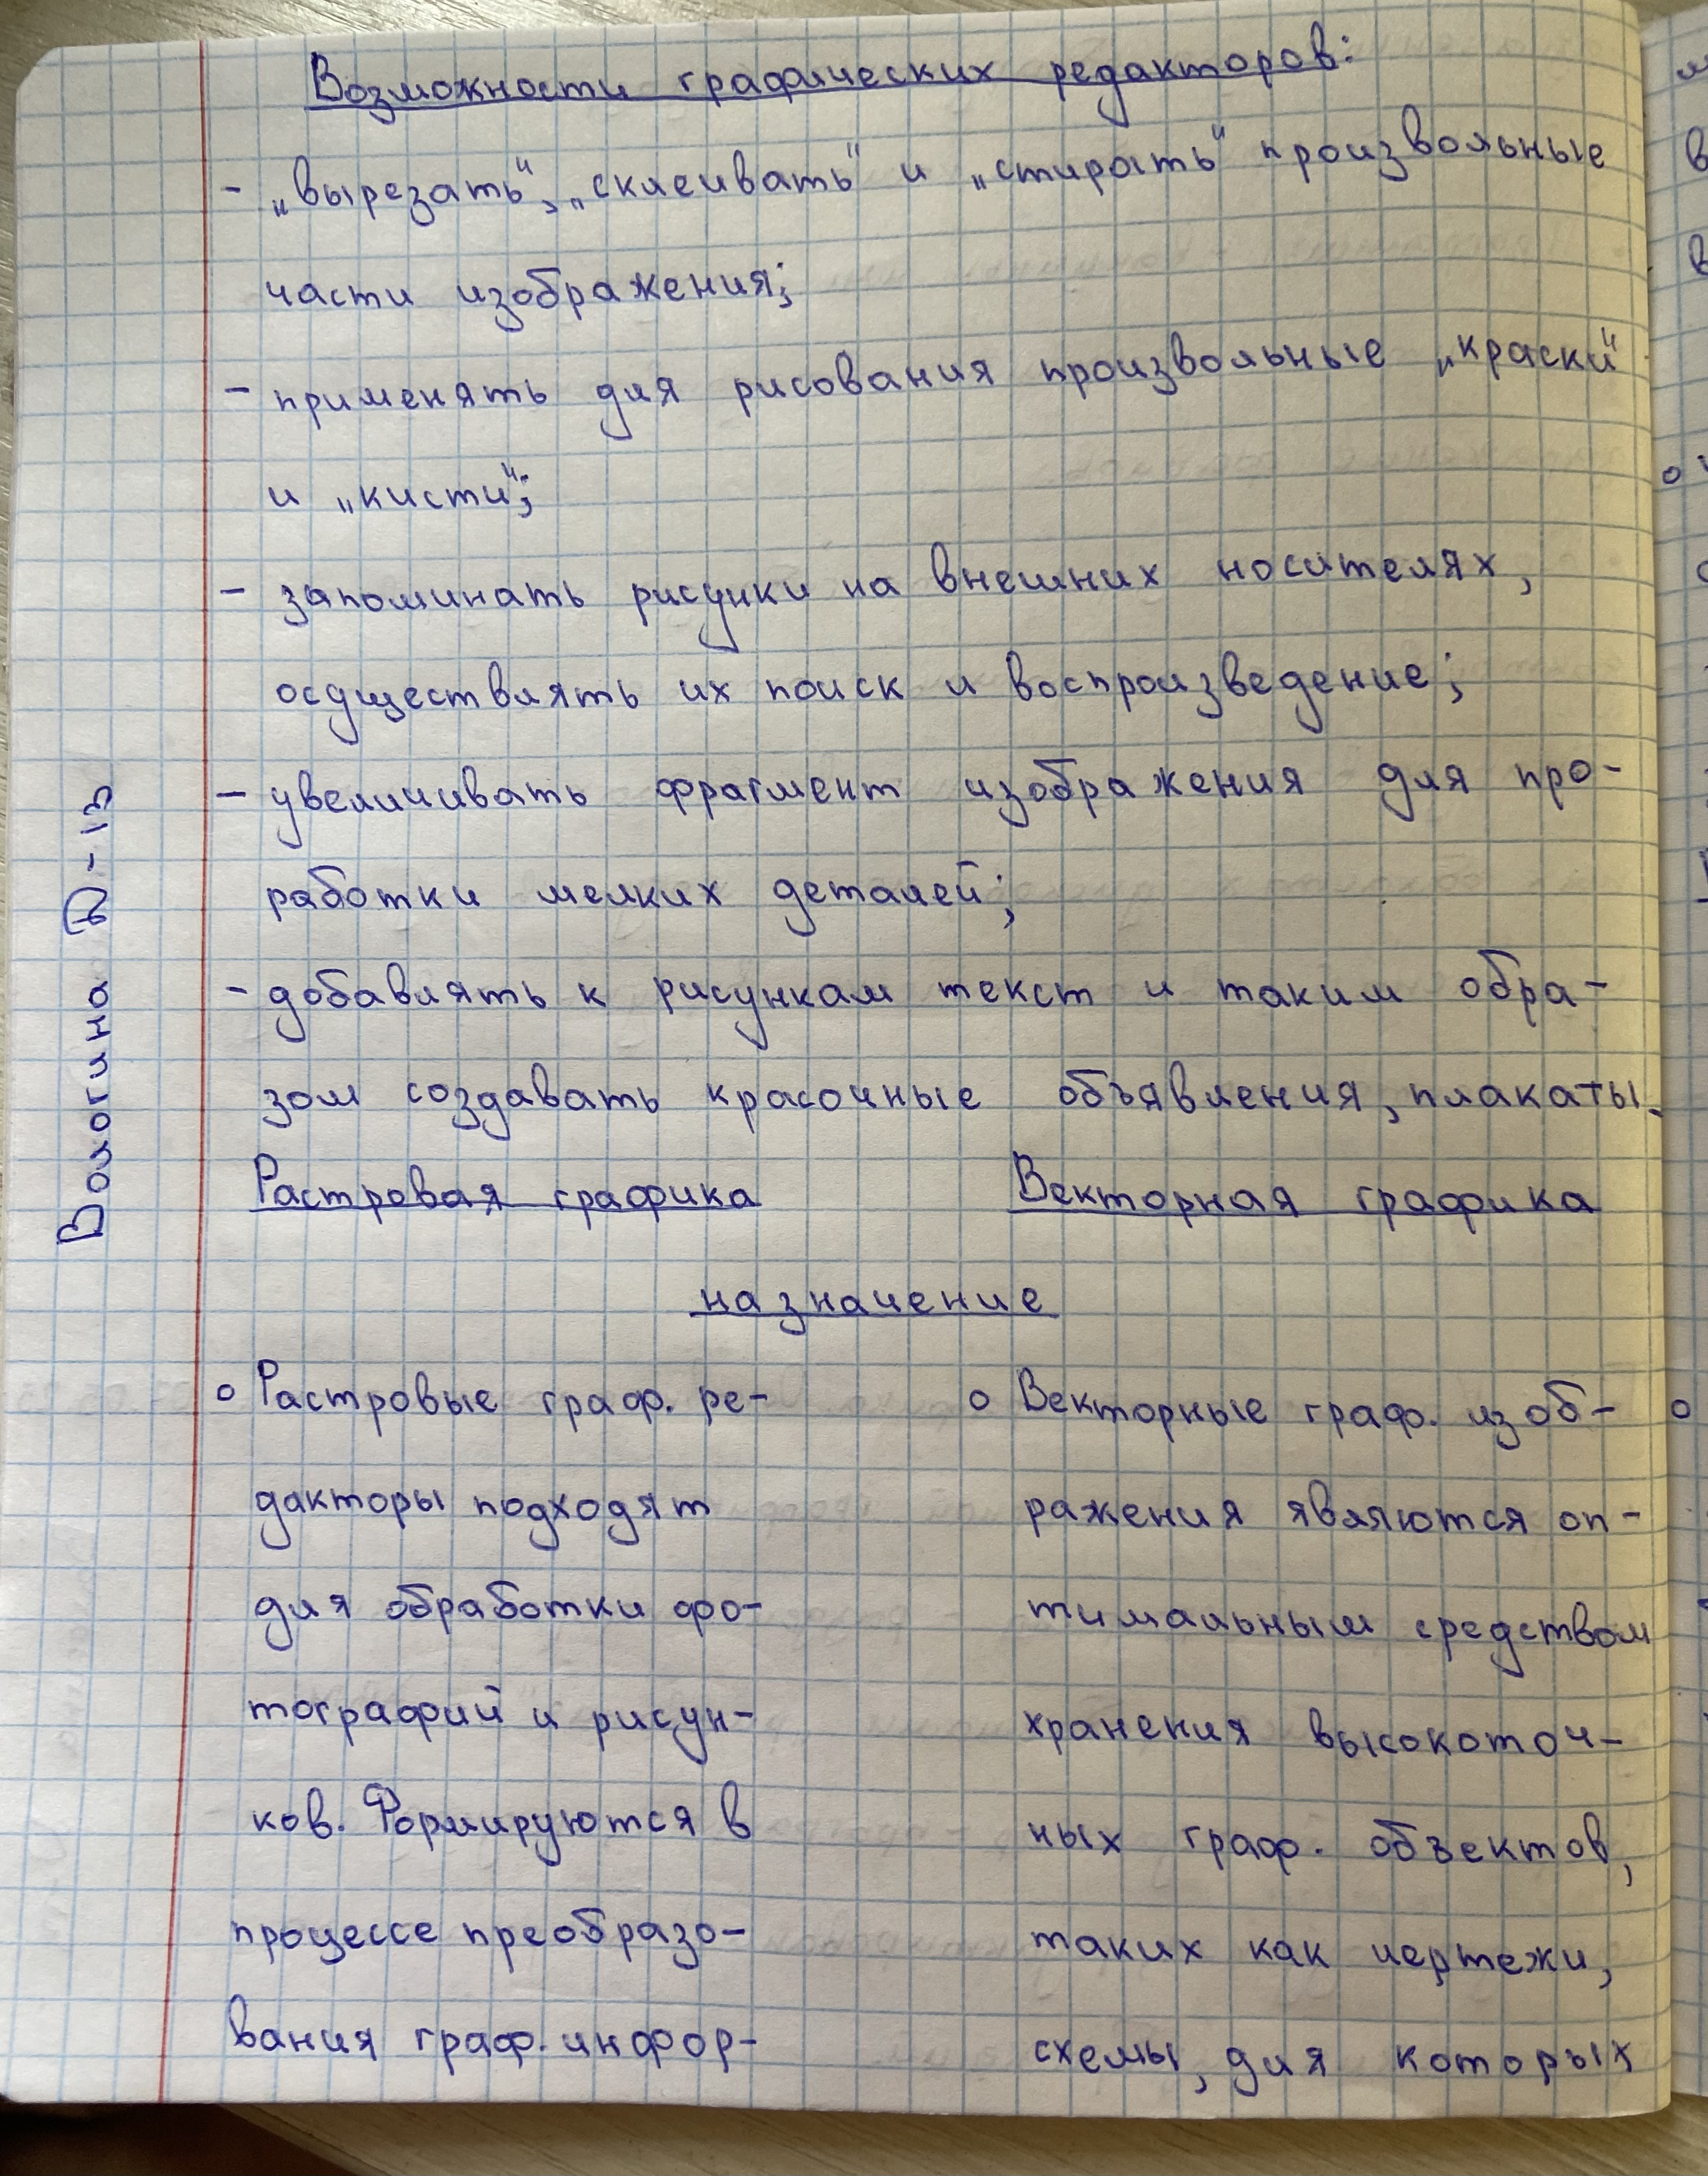 Возможности графических редакторов:
- „вырезать“, „склеивать“ и „стирать“ произвольные
части изображения;
- применять для рисования произвольные „краски“
и „кисти“;
- запоминать рисунки на внешних носителях,
осуществлять их поиск и воспроизведение;
- увеличивать фрагмент изображения для про-
работки мелких деталей;
- добавлять к рисункам текст и таким обра-
зом создавать красочные объявления, плакаты.
Растровая графика
назначение
Растровые граф. ре-
дакторы подходят
для обработки фо-
тографий и рисун-
ков. Формируются в
процессе преобразо-
вания граф. инфор-
Векторная графика
Векторные граф. изоб-
ражения являются оп-
тимальным средством
хранения высокоточ-
ных граф. объектов,
таких как чертежи,
схемы, для которых
Вологина